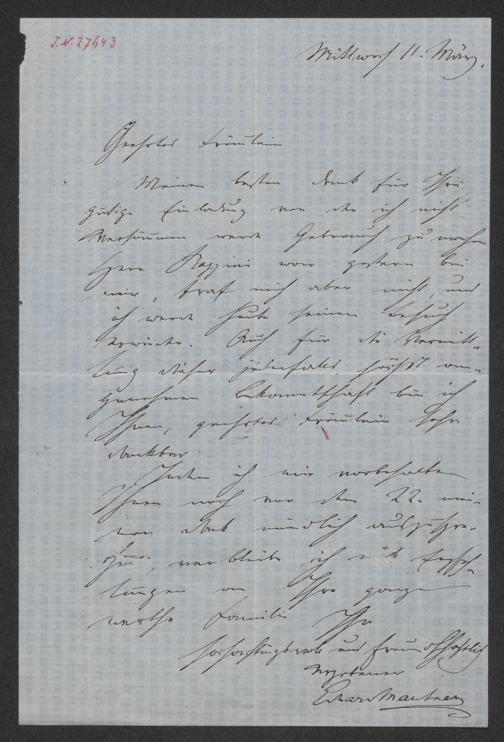 J.N. 27643
Mittwoch 11. März.
Geehrtes Fräulein
Meinen besten Dank für Ihre
gütige Einladung von der ich nicht
versäumen werde Gebrauch zu machen
Herr war gestern bei
mir, traf mich aber nicht, und
ich werde heute seinen Besuch
erwiedern. Auch für die Vermitt-
lung dieser jedenfalls höchst an-
genehmen Bekanntschaft bin ich
Ihnen, geehrtes Fräulein sehr
dankbar.
Indem ich mir vorbehalte
Ihnen noch vor dem 22. mei-
nen Dank mündlich auszuspre-
chen, verbleibe ich mit Empfeh-
lungen an Ihre ganze
werthe Familie Ihr
hochachtungsvoll und freundschaftlich
ergebener
Eduard Mautner